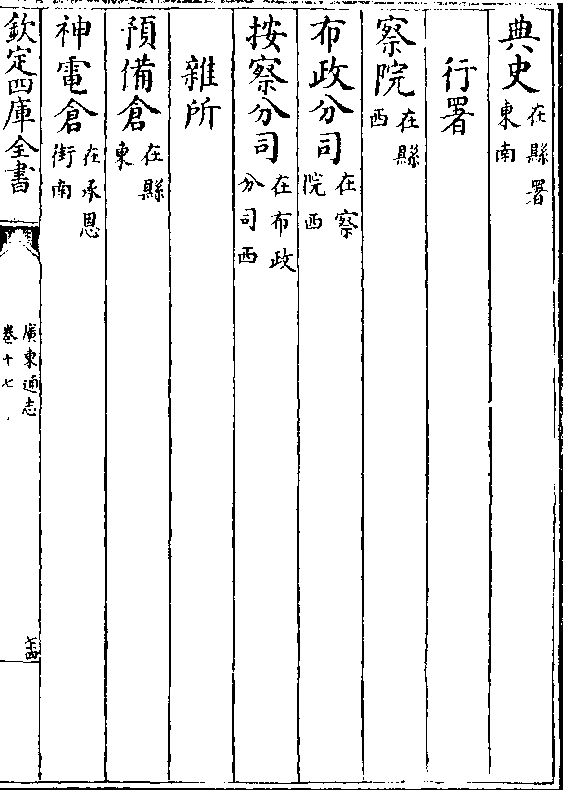 典史在縣署東南
行署
察院在縣西
布政分司在察院西
按察分司在布政分司西
雜所
預備倉在縣東
神電倉在承恩街南
欽定四庫全書
廣東通志
卷十七